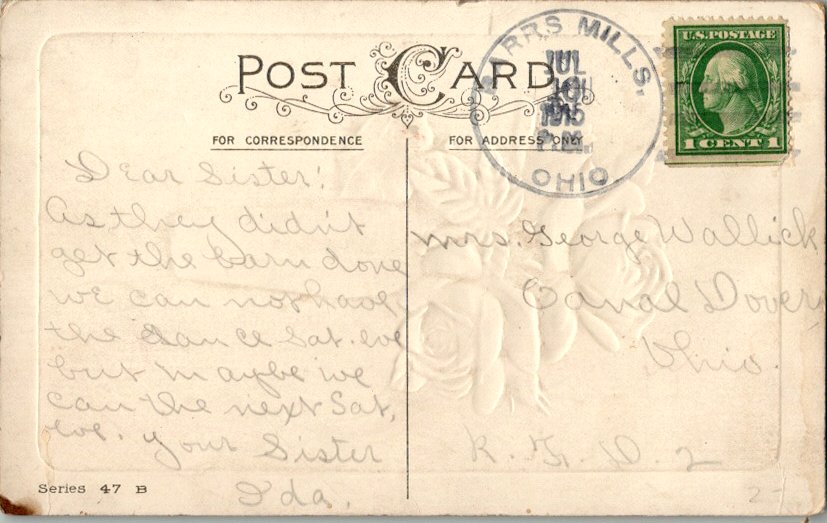 POST CARD
FOR CORRESPONDENCE
FOR ADDRESS ONLY
BARRS MILLS,
JUL
10
1915
P.M.
OHIO
U.S. POSTAGE
1 CENT 1
Dear Sister!
As they didn't
get the barn done
we can not have
the dance Sat. eve
but maybe we
can the next Sat,
eve. your Sister
Ida.
Mrs. George Wallick
Canal Dover
Ohio.
R. F. D. 2
Series 47 B